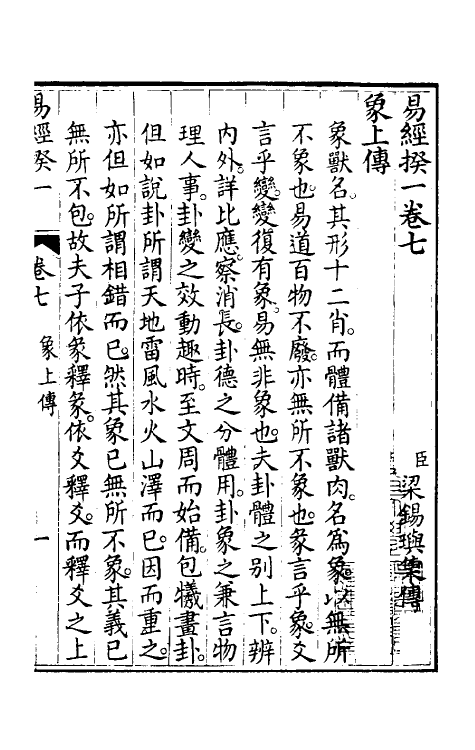 易經揆一卷七
臣梁錫璵集傳
象上傳
象獸名其形十二肖而體備諸獸肉名爲象以無所
不象也易道百物不廢亦無所不象也彖言乎象爻
言乎變變復有象易無非象也夫卦體之别上下辨
内外詳比應察消長卦德之分體用卦象之兼言物
理人事卦變之效動趣時至文周而始備包犧畫卦
但如說卦所謂天地雷風水火山澤而已因而重之
亦但如所謂相錯而已然其象已無所不象其義已
無所不包故夫子依彖釋彖依爻釋爻而釋爻之上
易經揆一
卷七
象上傳
一